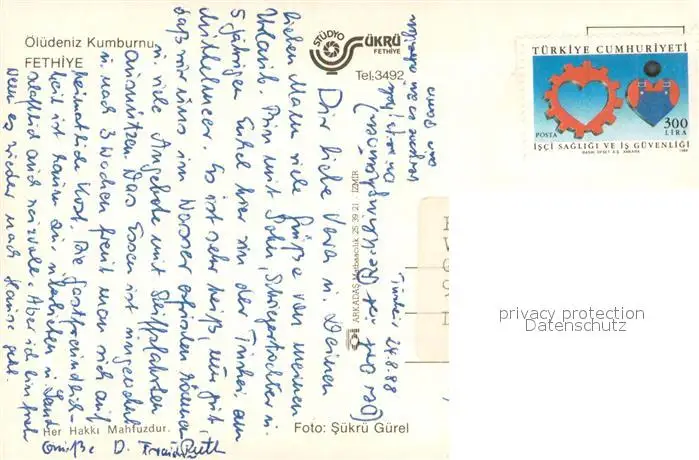 Ölüdeniz Kumburnu
FETHİYE
STÜDYO
ŞÜKRÜ
FETHİYE
Tel:3492
TÜRKİYE CUMHURİYETİ
300
LİRA
POSTA
İŞÇİ SAĞLIĞI VE İŞ GÜVENLİĞİ
ARKADAŞ Matbaacılık 25 39 21 İZMİR
Her Hakkı Mahfuzdur.
Foto: Şükrü Gürel
Türkei, 24.8.88
Dir liebe Vera u. Deinem
lieben Mann viele Grüße von meinem
Urlaub. Bin mit Sohn, Schwiegertochter u.
5 jährigen Enkel hier in der Türkei, am
Mittelmeer. Es ist sehr heiß, nur gut,
daß wir uns im Wasser erfrischen können
u. viele Angebote mit Schiffsfahrten
ausnützen. Das Essen ist
u. nach 3 Wochen freut man sich auf
heimatliche Kost. Die Gastfreundlich-
keit ist kaum zu u. Land-
schaftlich auch reizvoll. Aber ich bin froh
wenn es wieder nach Hause geht.
Grüße D. Ruth
privacy protection
Datenschutz